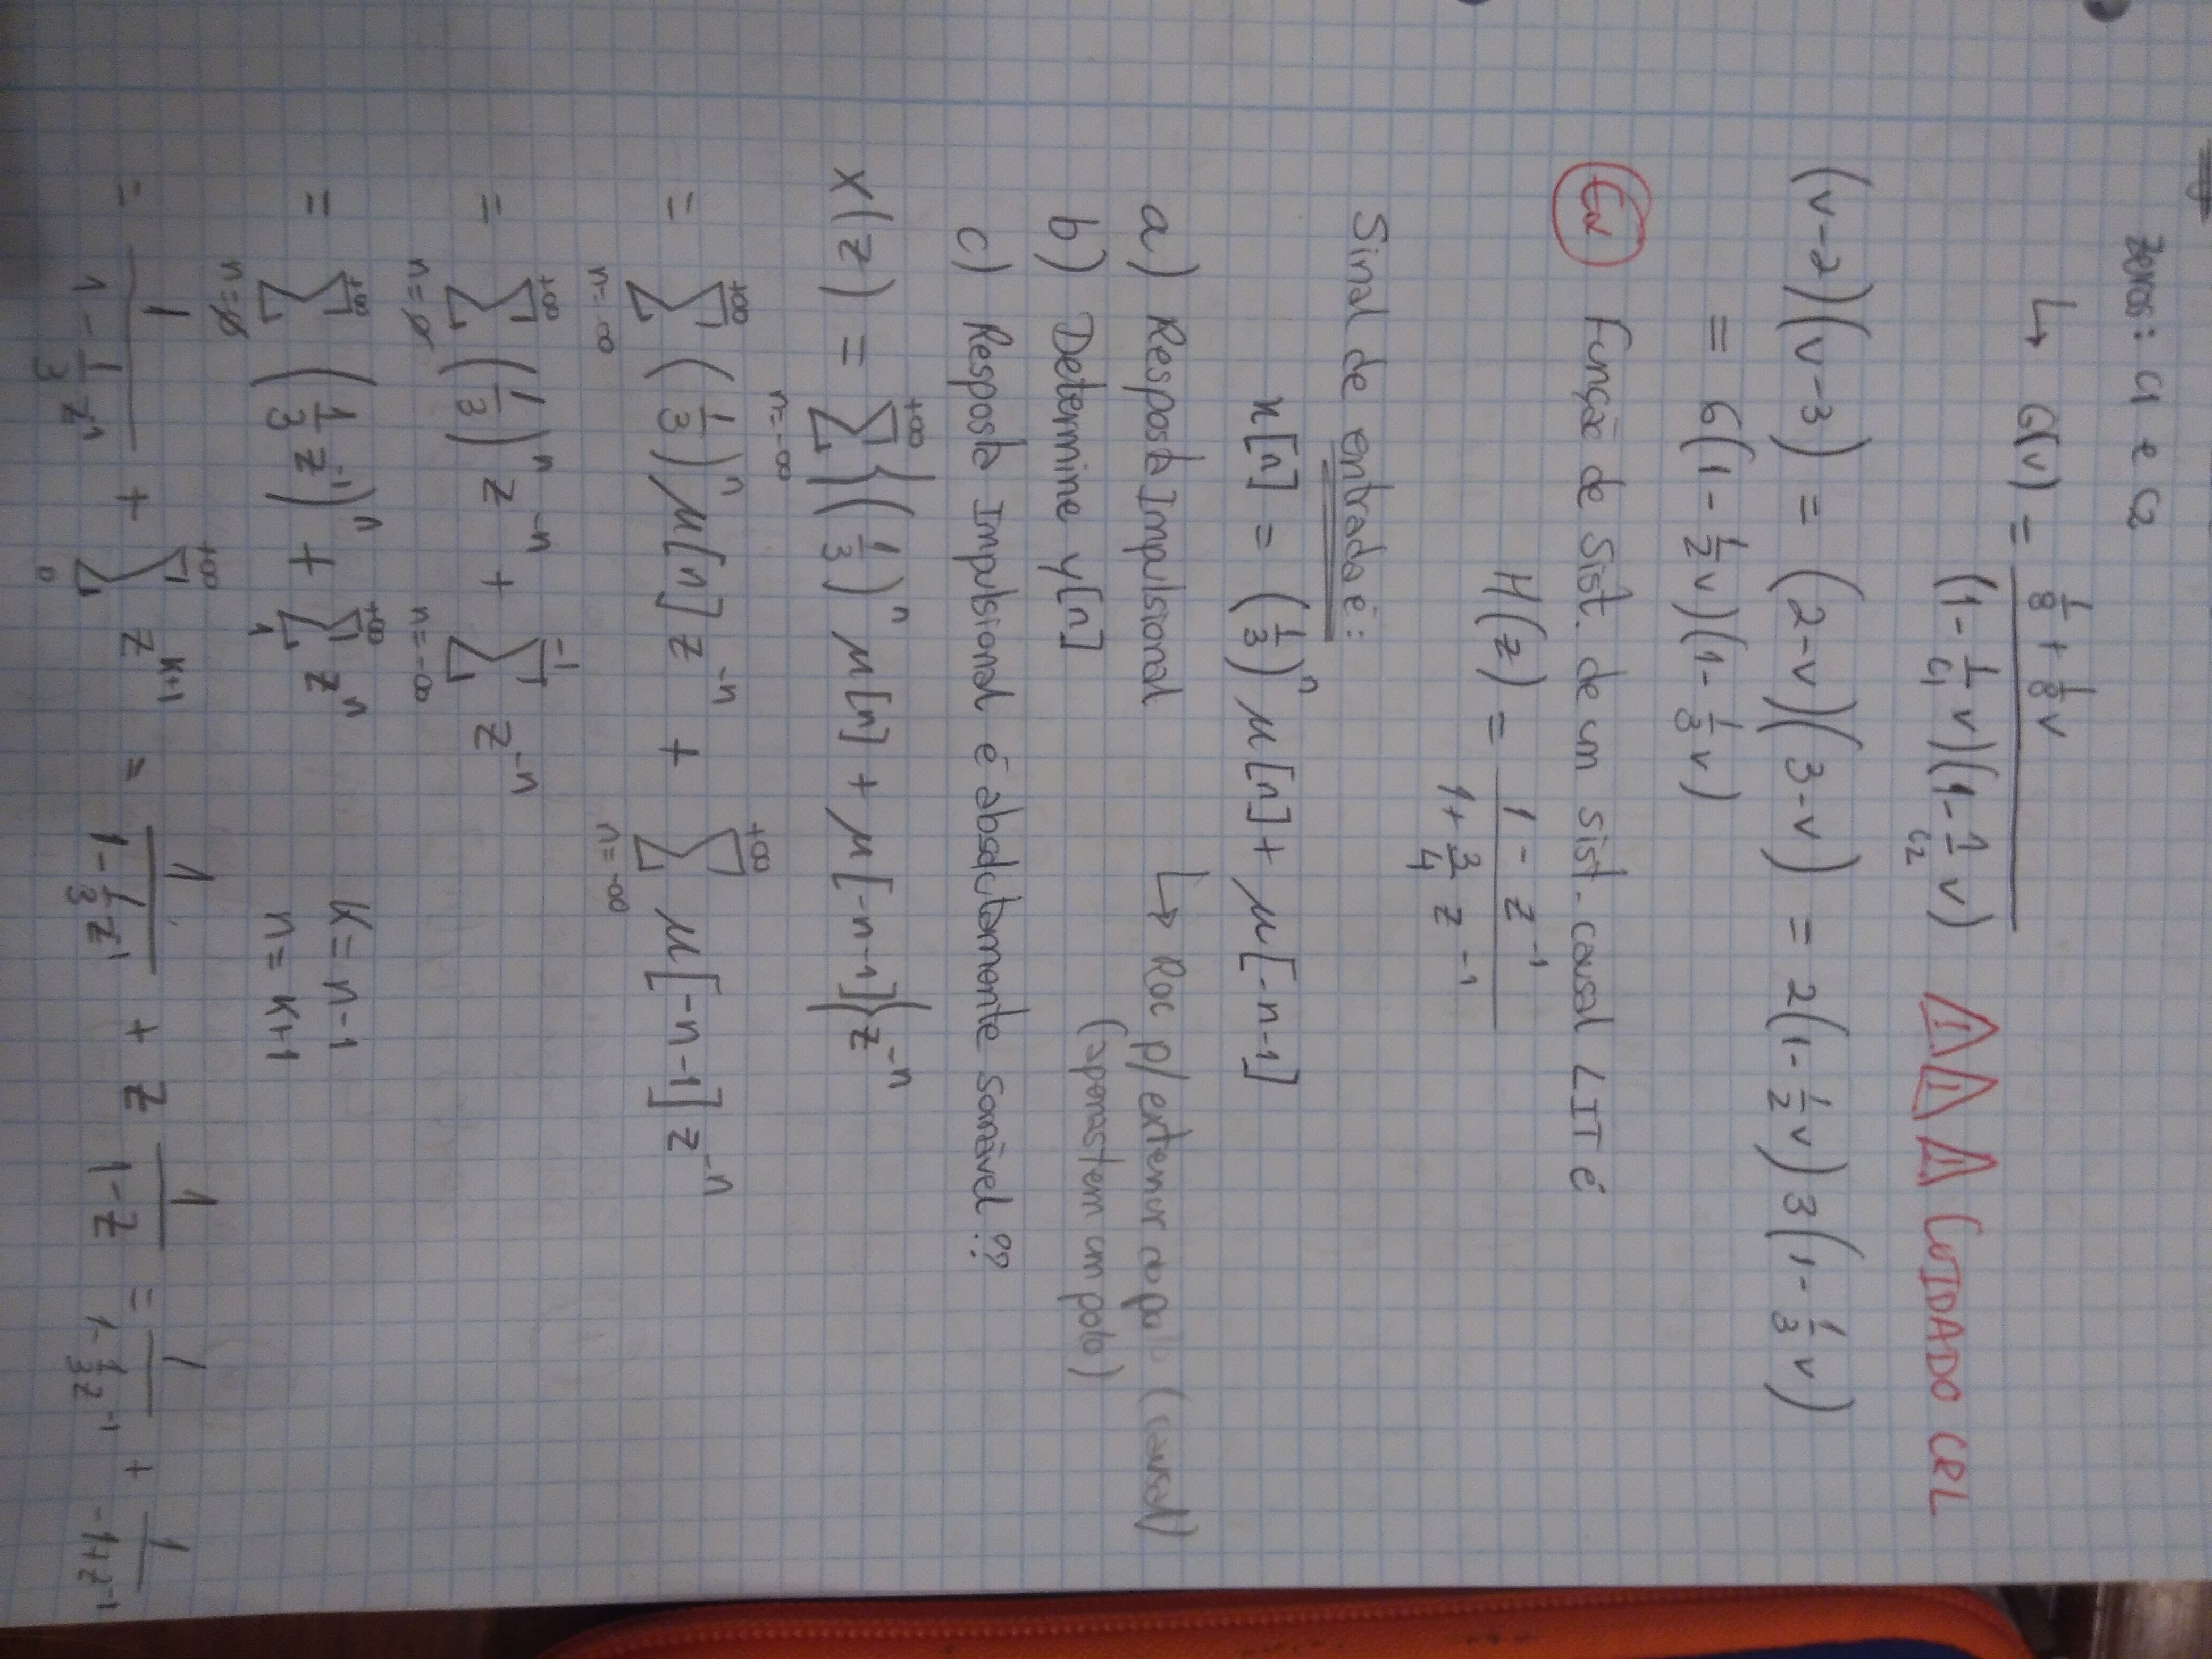 Zeros: C1 e C2
↳ G(v) = (1/8 + 1/8 v) / ((1 - 1/C1 v)(1 - 1/C2 v)) ⚠⚠⚠ CUIDADO CRL
(v-2)(v-3) = (2-v)(3-v) = 2(1 - 1/2 v) 3(1 - 1/3 v)
= 6(1 - 1/2 v)(1 - 1/3 v)
Ex Função de Sist. de um sist. causal LIT é
H(z) = (1 - z^-1) / (1 + 3/4 z^-1)
Sinal de entrada é:
x[n] = (1/3)^n μ[n] + μ[-n-1]
a) Resposta Impulsional ↳ Roc p/ exterior do polo (causal)
(apenas tem um polo)
b) Determine y[n]
c) Resposta Impulsional é absolutamente somável??
X(z) = Σ_{n=-∞}^{+∞} {(1/3)^n μ[n] + μ[-n-1]} z^-n
= Σ_{n=-∞}^{+∞} (1/3)^n μ[n] z^-n + Σ_{n=-∞}^{+∞} μ[-n-1] z^-n
= Σ_{n=0}^{+∞} (1/3)^n z^-n + Σ_{n=-∞}^{-1} z^-n
= Σ_{n=0}^{+∞} (1/3 z^-1)^n + Σ_{1}^{+∞} z^n K = n-1
n = K+1
= 1/(1 - 1/3 z^-1) + Σ_{0}^{+∞} z^{K+1} = 1/(1 - 1/3 z^-1) + z 1/(1-z) = 1/(1 - 1/3 z^-1) + 1/(-1+z^-1)